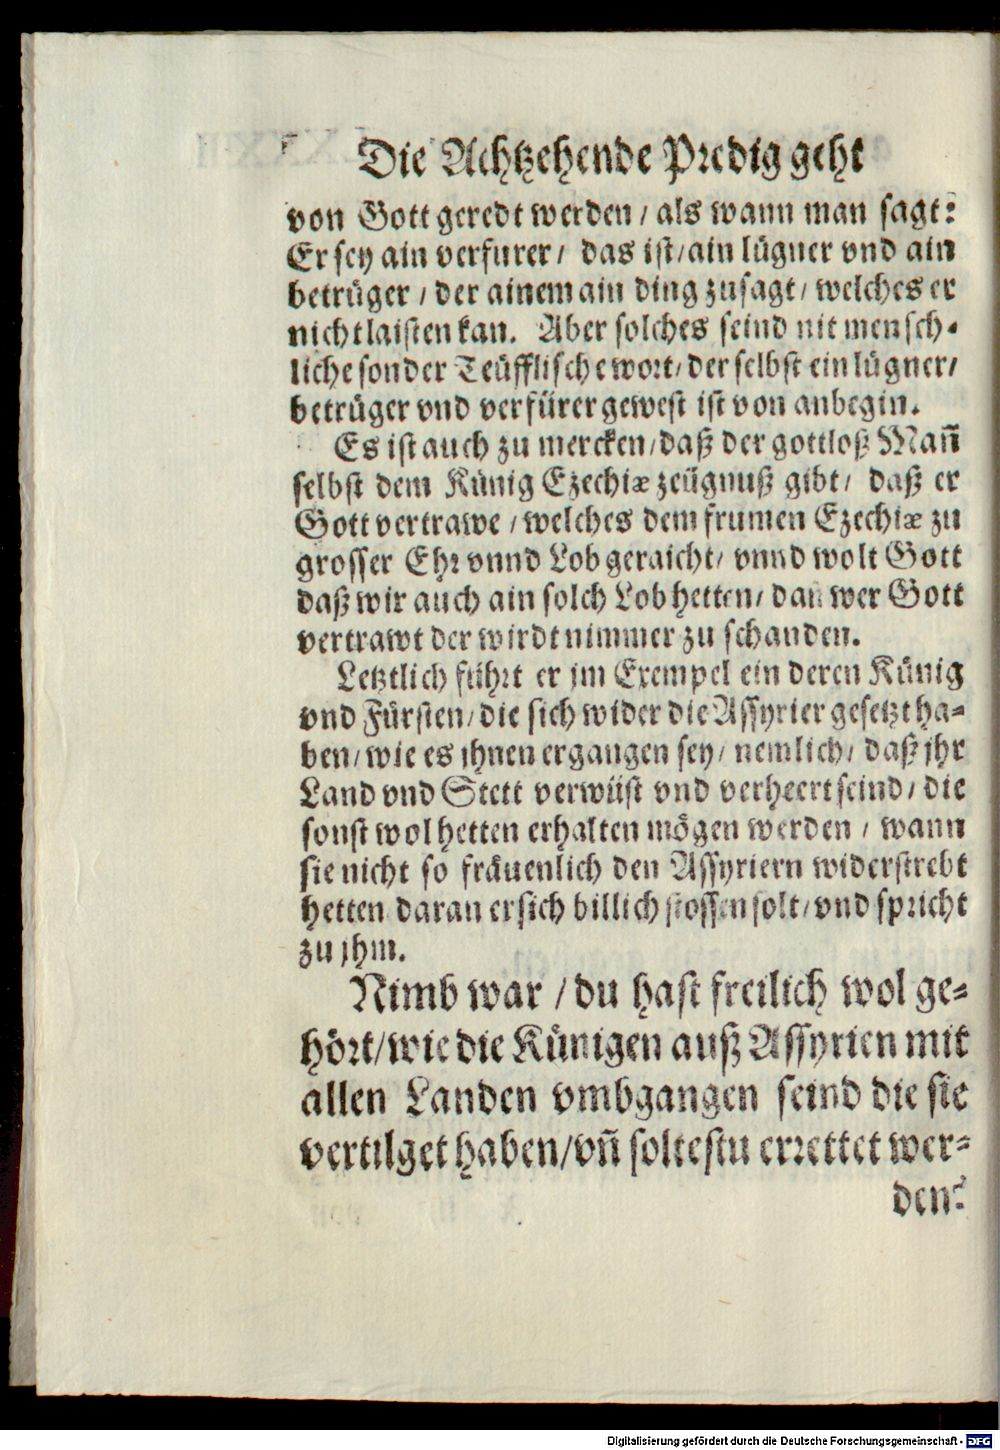 Die Achtzehende Predig geht
von Gott geredt werden / als wann man sagt:
Er sey ain verfurer / das ist / ain lügner vnd ain
betrüger / der ainem ain ding zusagt / welches er
nicht laisten kan. Aber solches seind nit mensch-
liche sonder Teüfflische wort / der selbst ein lügner /
betrüger vnd verfürer gewest ist von anbegin.
Es ist auch zu mercken / daß der gottloß Mañ
selbst dem Künig Ezechiæ zeügnuß gibt / daß er
Gott vertrawe / welches dem frumen Ezechiæ zu
grosser Ehr vnnd Lob geraicht / vnnd wolt Gott
daß wir auch ain solch Lob hetten / dan wer Gott
vertrawt der wirdt nimmer zu schanden.
Letztlich führt er jm Exempel ein deren Künig
vnd Fürsten / die sich wider die Assyrier gesetzt ha-
ben / wie es jhnen ergangen sey / nemlich / daß jhr
Land vnd Stett verwüst vnd verheert seind / die
sonst wol hetten erhalten mögen werden / wann
sie nicht so fräuenlich den Assyriern widerstrebt
hetten daran er sich billich stossen solt / vnd spricht
zu jhm.
Nimb war / du hast freilich wol ge-
hört / wie die Künigen auß Assyrien mit
allen Landen vmbgangen seind die sie
vertilget haben / vñ soltestu errettet wer-
den?
Digitalisierung gefördert durch die Deutsche Forschungsgemeinschaft - DFG